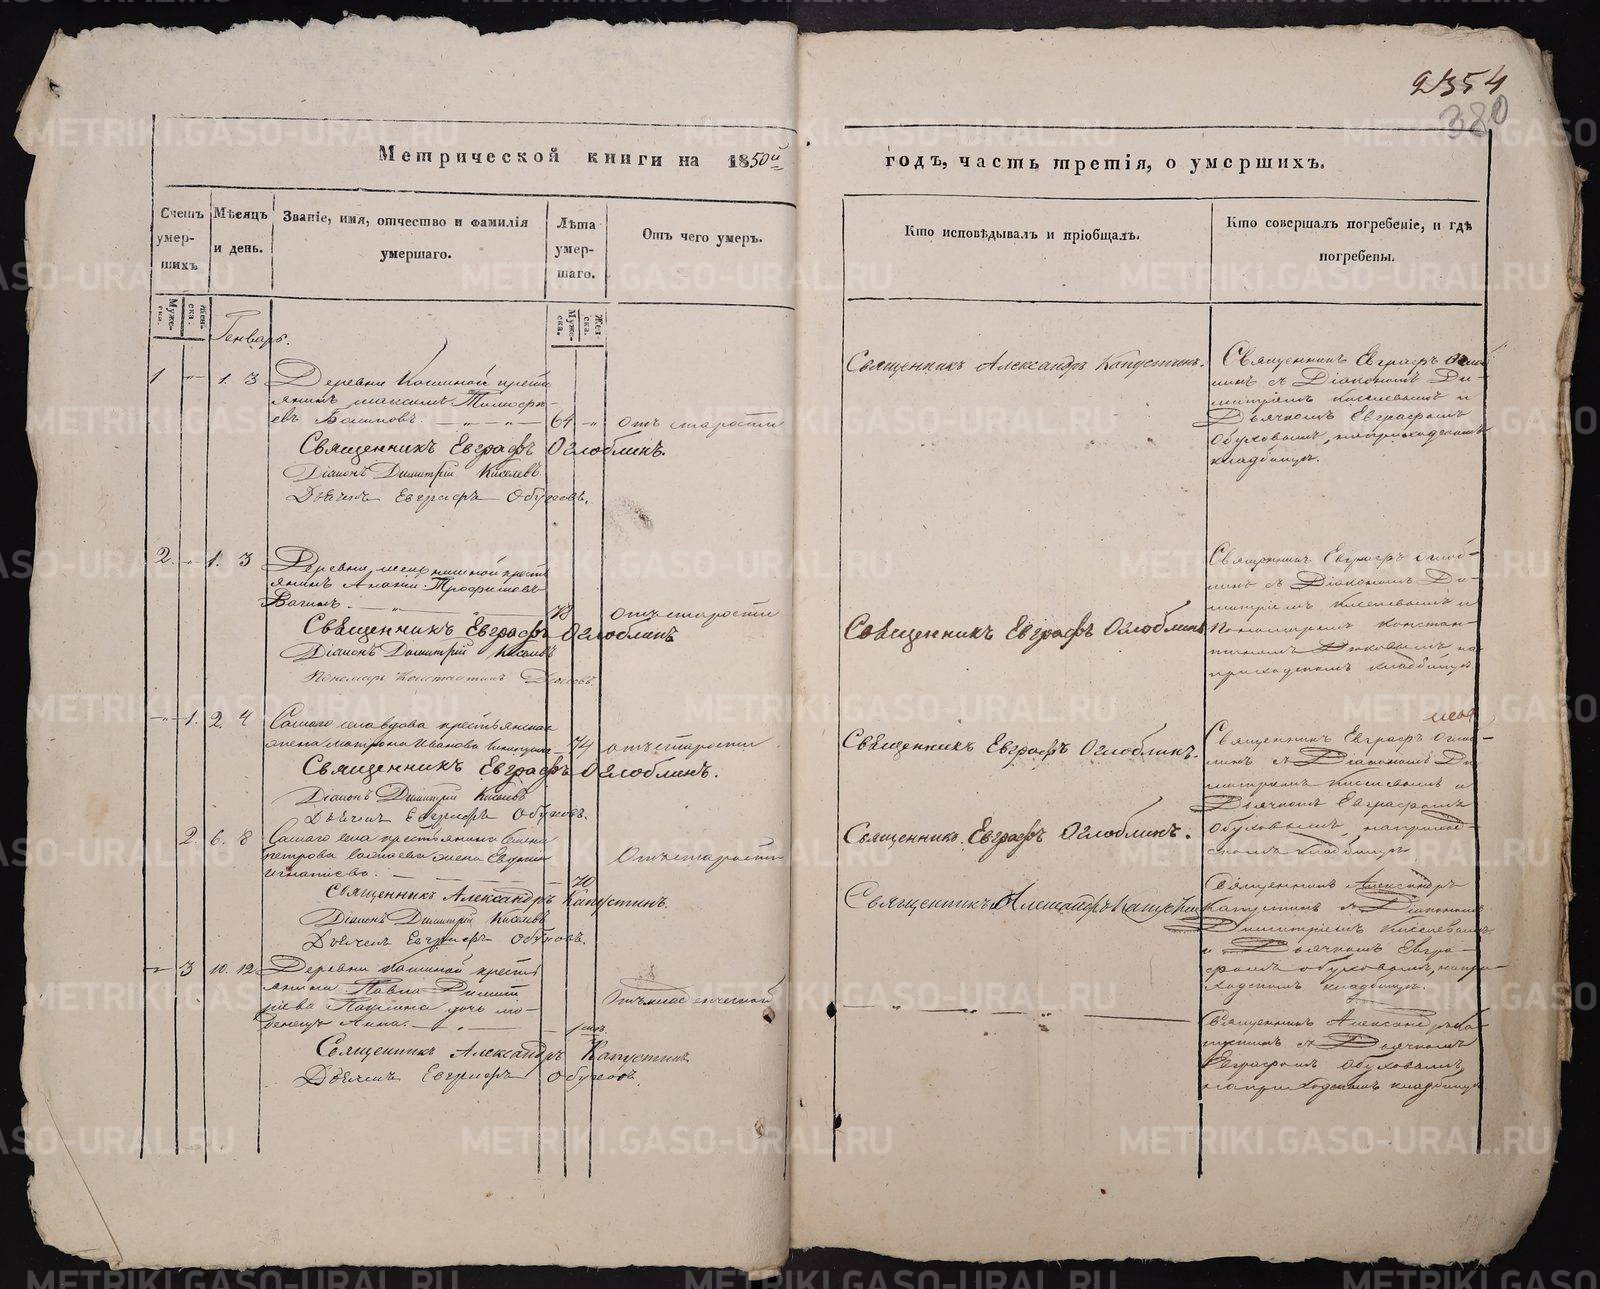 2354
380
Метрической книги на 1850й
годъ, часть третія, о умершихъ.
Счетъ умер-шихъ
Мѣсяцъ и день.
Званіе, имя, отчество и фамилія умершаго.
Лѣта умер-шаго.
Отъ чего умеръ.
Кто исповѣдывалъ и пріобщалъ.
Кто совершалъ погребеніе, и гдѣ погребены.
Муже-ска.
Жен-ска.
Муже-ска.
Жен-ска.
Генварь.
1 " 1. 3
Деревни Кошиной кресть
янинъ Максимъ Тимофе-
евъ 64 " отъ старости
Священникъ Евграфъ Оглоблинъ.
Діаконъ Димитрій Киселевъ
Дьячекъ Евграфъ Обуховъ.
Священникъ Александръ Капустинъ.
Священникъ Евграфъ Оглоб
линъ съ Діакономъ Ди-
митріемъ Киселевымъ и
Дьячкомъ Евграфомъ
Обуховымъ, на приходскомъ
кладбищѣ.
2. " 1. 3
Деревни кресть
янинъ Ананій Трофимовъ
Вагинъ. 78 отъ старости
Священникъ Евграфъ Оглоблинъ
Діаконъ Димитрій Киселевъ
Пономарь Константинъ
Священникъ Евграфъ Оглоблинъ
Священникъ Евграфъ Оглоб-
линъ съ Діакономъ Ди-
митріемъ Киселевымъ и
Пономаремъ Констан-
тиномъ на
приходскомъ кладбищѣ
" 1. 2. 4
Самаго крестьянская
жена Матрона Иванова 74 отъ старости
Священникъ Евграфъ Оглоблинъ.
Діаконъ Димитрій Киселевъ
Дьячекъ Евграфъ Обуховъ.
Священникъ Евграфъ Оглоблинъ.
Священникъ Евграфъ Оглоб-
линъ съ Діакономъ Ди
митріемъ Киселевымъ и
Дьячкомъ Евграфомъ
Обуховымъ, на приход-
скомъ кладбищѣ
2. 6. 8
Самаго села крестьянина
Петрова жена Евдокія
Игнатіева. 70 Отъ старости
Священникъ Александръ Капустинъ.
Діаконъ Димитрій Киселевъ
Дьячекъ Евграфъ Обуховъ.
Священникъ Евграфъ Оглоблинъ.
Священникъ Александръ Капустинъ
Священникъ Александръ
Капустинъ съ Діакономъ
Димитріемъ Киселевымъ
и Дьячкомъ Евгра-
фомъ Обуховымъ, на при-
ходскомъ кладбищѣ.
" 3 10. 12
Деревни Кошиной кресть
янина Павла Димит
ріева дочь мла-
денецъ Анна.
Священникъ Александръ Капустинъ
Дьячекъ Евграфъ Обуховъ.
Священникъ Александръ Ка-
пустинъ съ Дьячкомъ
Евграфомъ Обуховымъ,
на приходскомъ кладбищѣ
METRIKI.GASO-URAL.RU